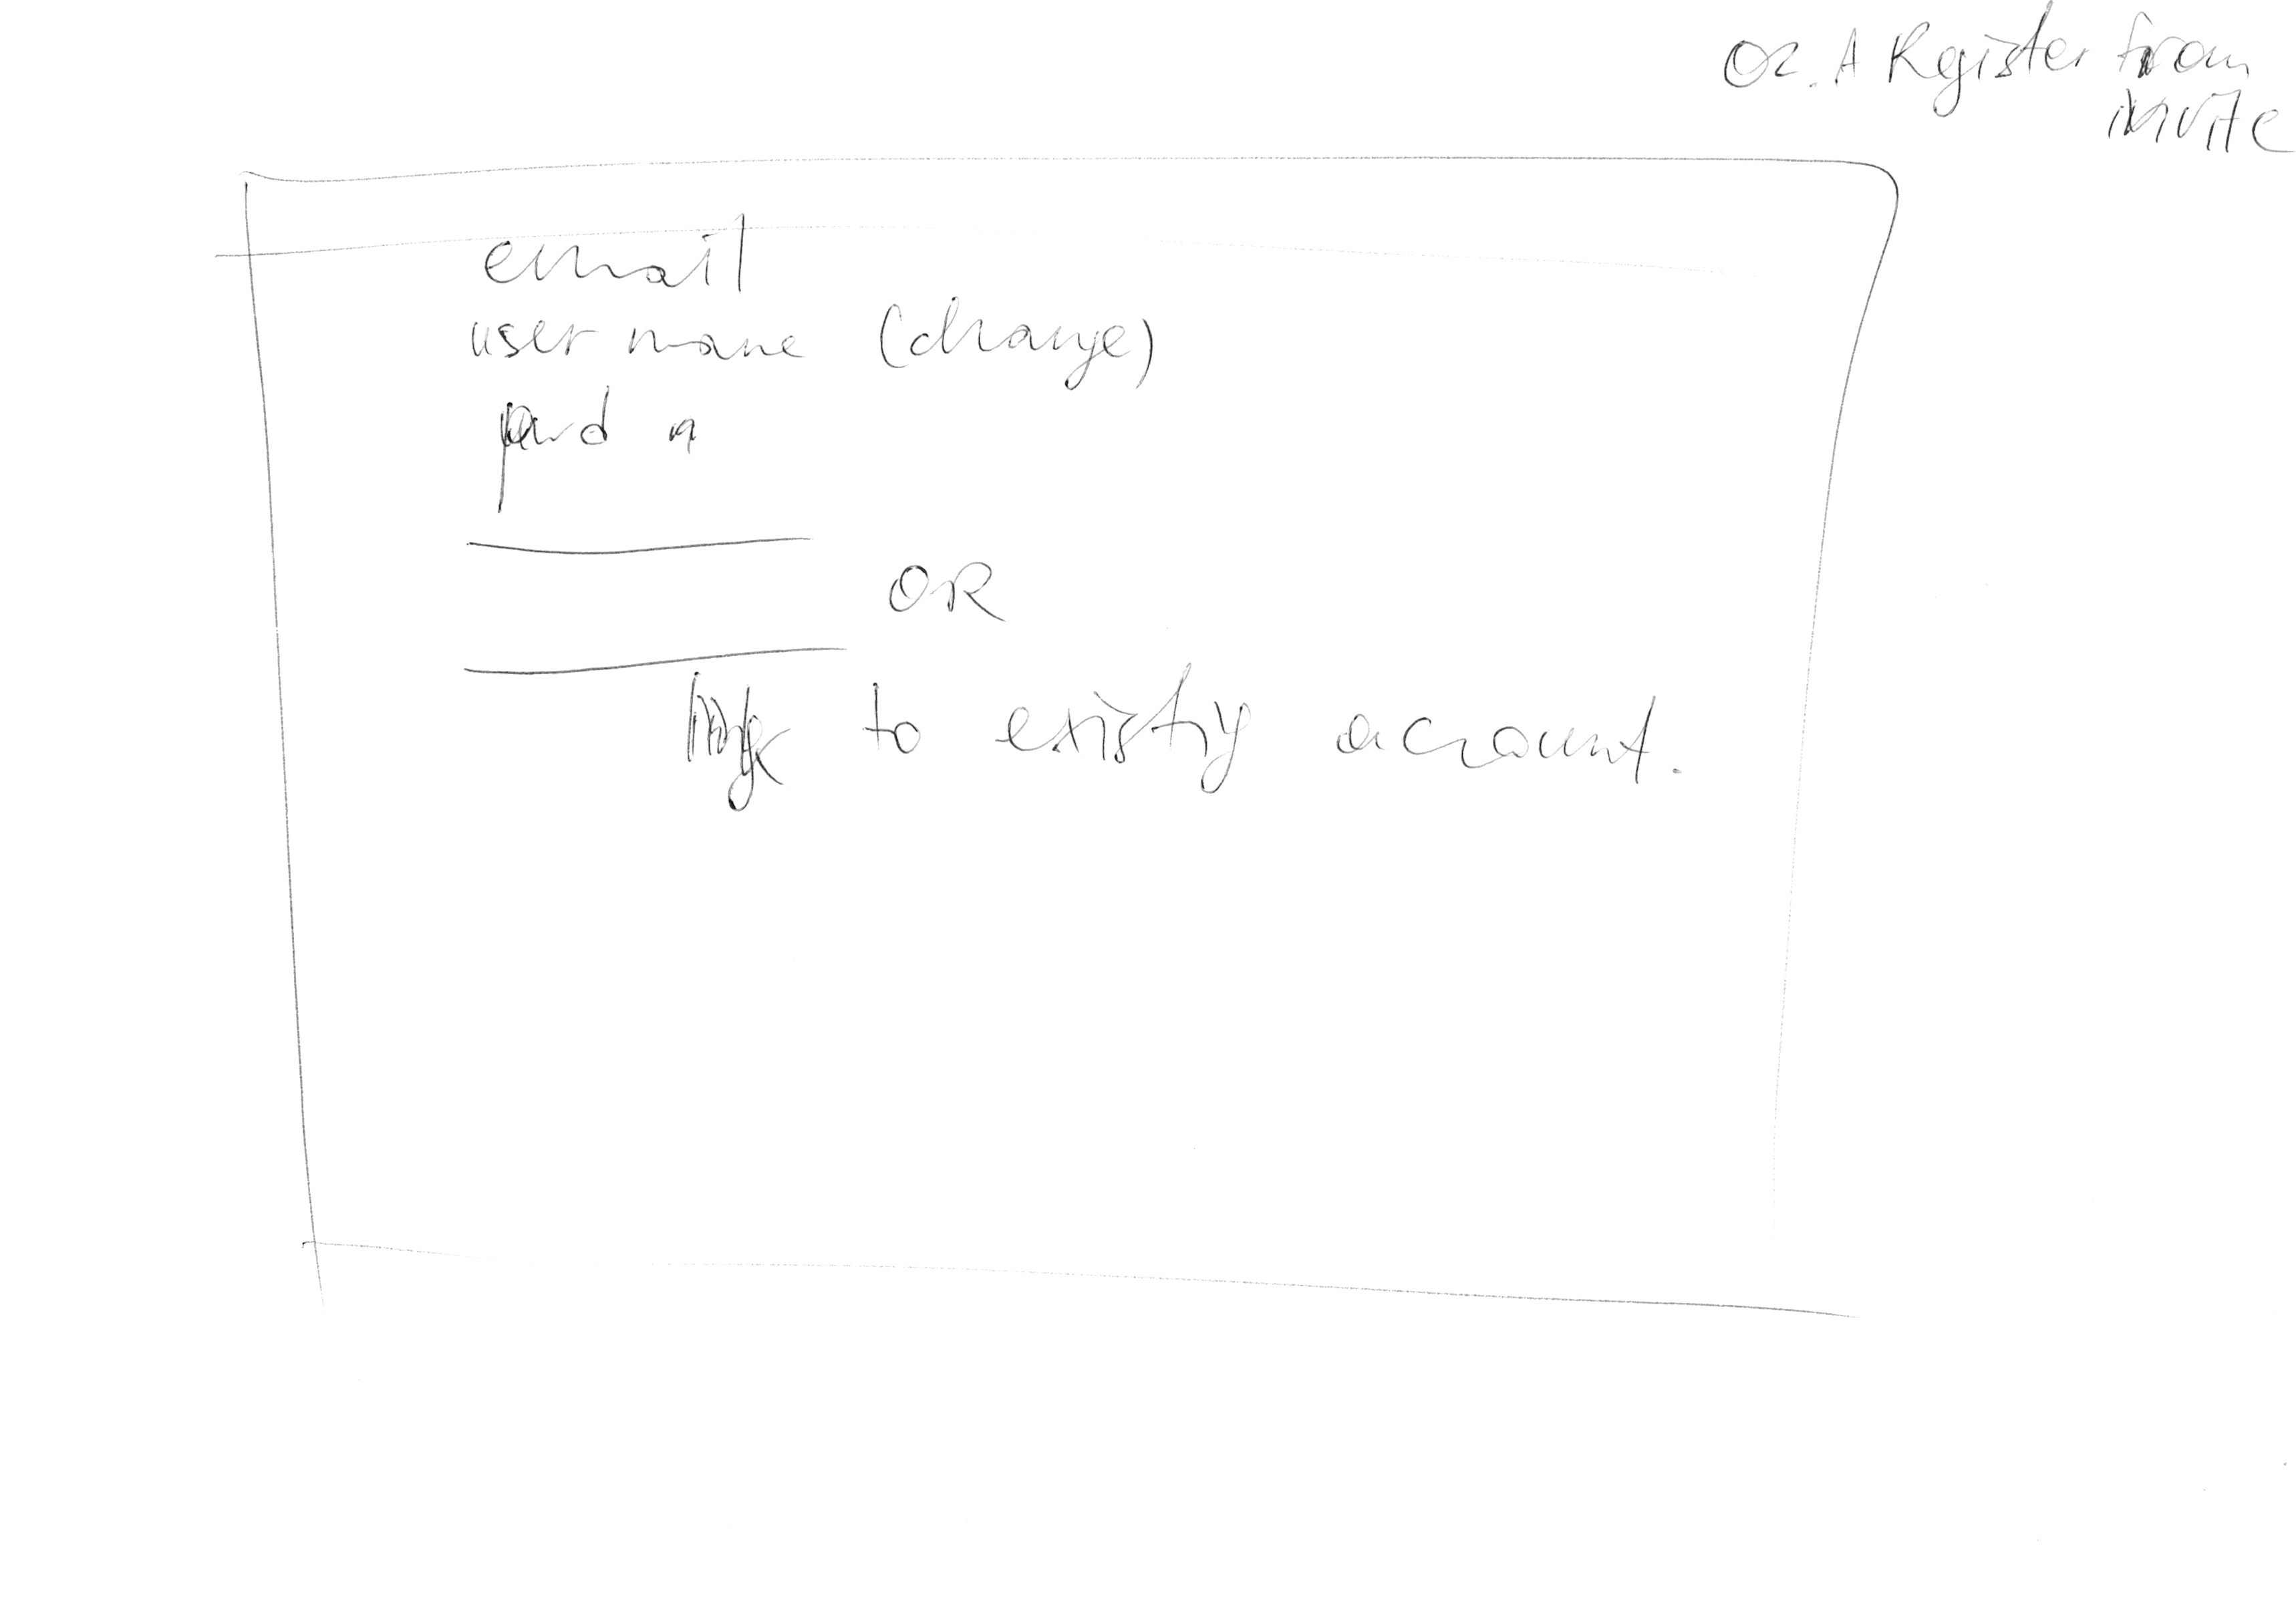 02. A Register from
invite
email
user name (change)
pwd
OR
link to existing account.